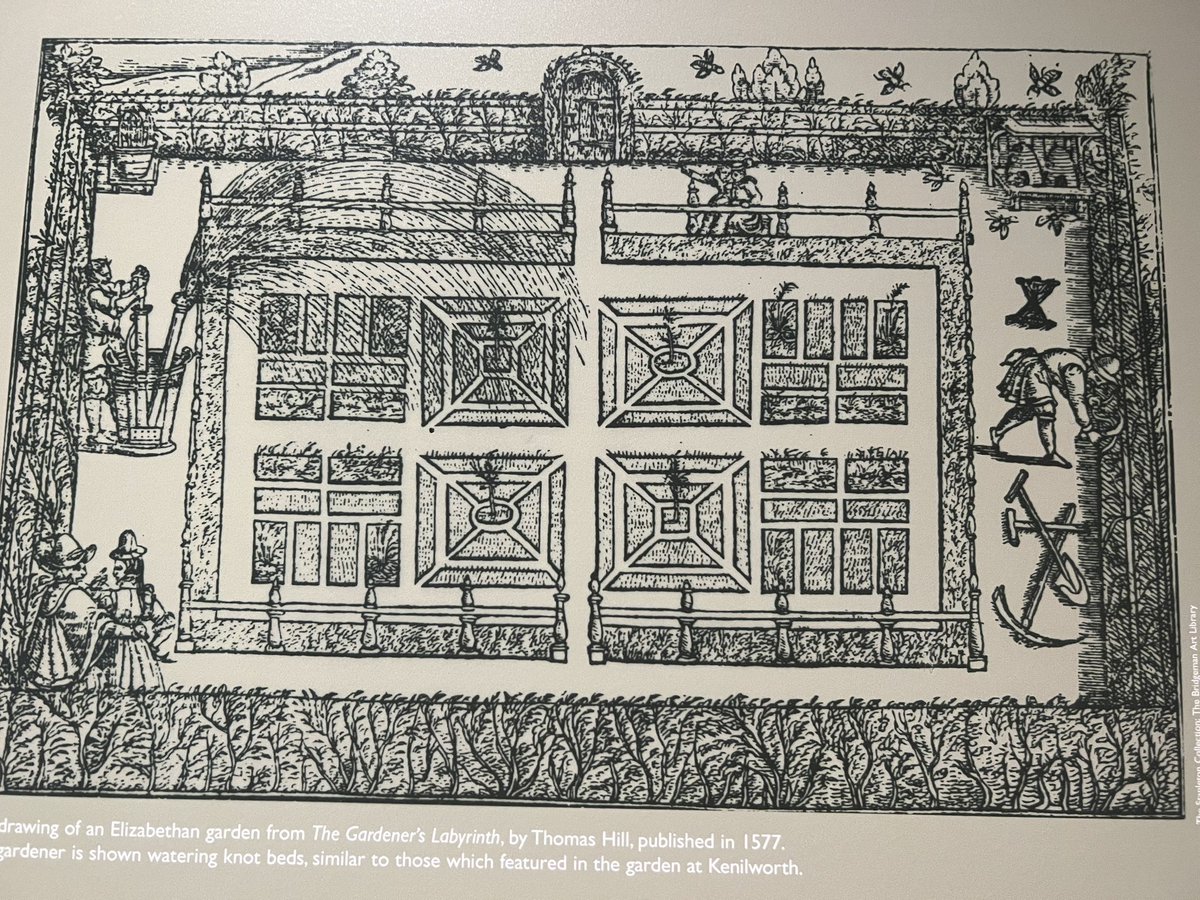 drawing of an Elizabethan garden from The Gardener's Labyrinth, by Thomas Hill, published in 1577.
gardener is shown watering knot beds, similar to those which featured in the garden at Kenilworth.
The Stapleton Collection; The Bridgeman Art Library